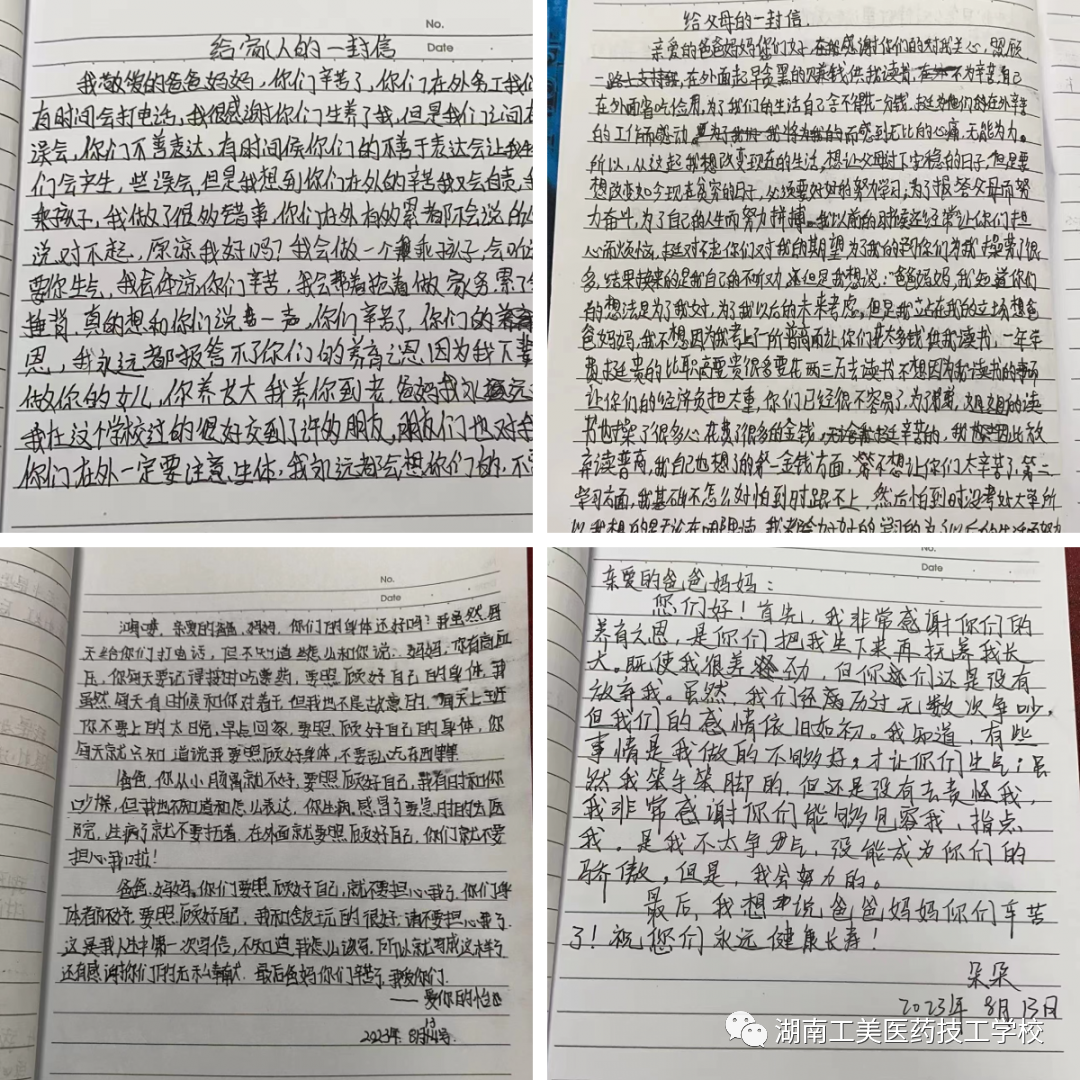 No.
Date
给家人的一封信
我敬爱的爸爸妈妈，你们辛苦了，你们在外务工我们
有时间会打电话，我很感谢你们生养了我，但是我们之间有
误会，你们不善表达，有时间候你们的不善于表达会让我
们会产生，些误会，但是我想到你们在外的辛苦我又会自责，
来孩子，我做了很多错事，你们在外有多累都不会说的
说对不起，原谅我好吗？我会做一个乖孩子，会听
要你生气，我会体谅，你们辛苦，我会帮着抢着做家务，累了
捶背，真的想和你们说一声，你们辛苦了，你们的养育
恩，我永远都报答不了你们的养育之恩因为我下辈
做你的女儿，你养大我养你到老，爸妈我
我在这个学校过的很好交到了许多朋友，朋友们也对
你们在外一定要注意身体，我永远都会想你们的，不
给父母的一封信.
亲爱的爸爸妈妈你们好，感谢你们的对我关心，照顾
一路上支持我，在外面起早贪黑的赚钱供我读书，不为辛苦自己
在外面省吃俭用，为了我们的生活自己舍不得花一分钱，在外辛苦
的工作而感动而感到无比的心痛，无能为力。
所以，从这起我想改变现在的生活，想让父母过下安稳的日子，但是要
想改变如今现在贫穷的日子，必须要好好的努力学习，为了报答父母而努
力奋斗，为了自己的人生而努力拼搏。我以前的时候还经常让你们担
心而烦恼，对不起你们对我的期望为了我的你们为我操费了很
多，结果是我自己的不听劝，但是我想说：“爸爸妈妈，我知道你们
的想法是为了我好，为了我以后的未来考虑，但是我站在我的立场想爸
爸妈妈，我不想因为我考上了一所普高而让你们花太多钱供我读书，一年学
费挺贵的比职高要贵很多要花两三万去读书不想因为我读书的事而
让你们的经济负担太重，你们已经很不容易了，为了姐姐的读
书也操了很多心花费了很多的金钱，辛苦的，我也因此放
弃读普高，我自己也想了的第一金钱方面，不想让你们太辛苦了，第二
学习方面，我基础不怎么好怕到时跟不上，然后怕到时没考起大学所
以我想的是无论在哪里读，我都会好好的学习的为了以后的生活而努力
No.
Date
亲爱的爸爸，妈妈，你们的身体还好吗？我虽然每
天给你们打电话，但不知道想么和你说，妈妈，你有高血
压，你每天要记得按时吃药，要照顾好自己的身体，我
虽然每天有时候和你对着干，但我也不是故意的，每天上班
你不要上的太晚，早点回家，要照顾好自己的身体，你
每天就只知道说我要照顾好身体，不要乱吃东西等等
爸爸，你从小胃就不好，要照顾好自己，我有时和你
吵候，但我也不知道和怎么表达，你生病，感冒了要及时的去医
院，生病了就不要拓着，在外面就要照顾好自己，你们就不要
担心我啦！
爸爸，妈妈，你们要照顾好自己，就不要担心我了，你们身
体都不好，要照顾好自己，我和舍友玩的很好，请不要担心我了
这是我人生中第一次写信，不知道我怎么读写，所以就写成这样了
还有感谢你们的无私奉献，最后爸妈你们辛苦了，我爱你们.
——爱你的怡
2023年8月13号.
No.
Date
亲爱的爸爸妈妈：
您们好！首先，我非常感谢你们的
养育之恩，是你们把我生下来再抚养我长
大。既使我很差劲，但你们还是没有
放弃我。虽然，我们经历过无数次争吵，
但我们的感情依旧如初。我知道，有些
事情是我做的不够好，才让你们生气；虽
然我笨手笨脚的，但还是没有去责怪我，
我非常感谢你们能够包容我、指点
我。是我不太争气，没能成为你们的
骄傲，但是，我会努力的。
最后，我想说爸爸妈妈你们辛苦
了！祝您们永远健康长寿！
朵朵
2023年8月13日
湖南工美医药技工学校